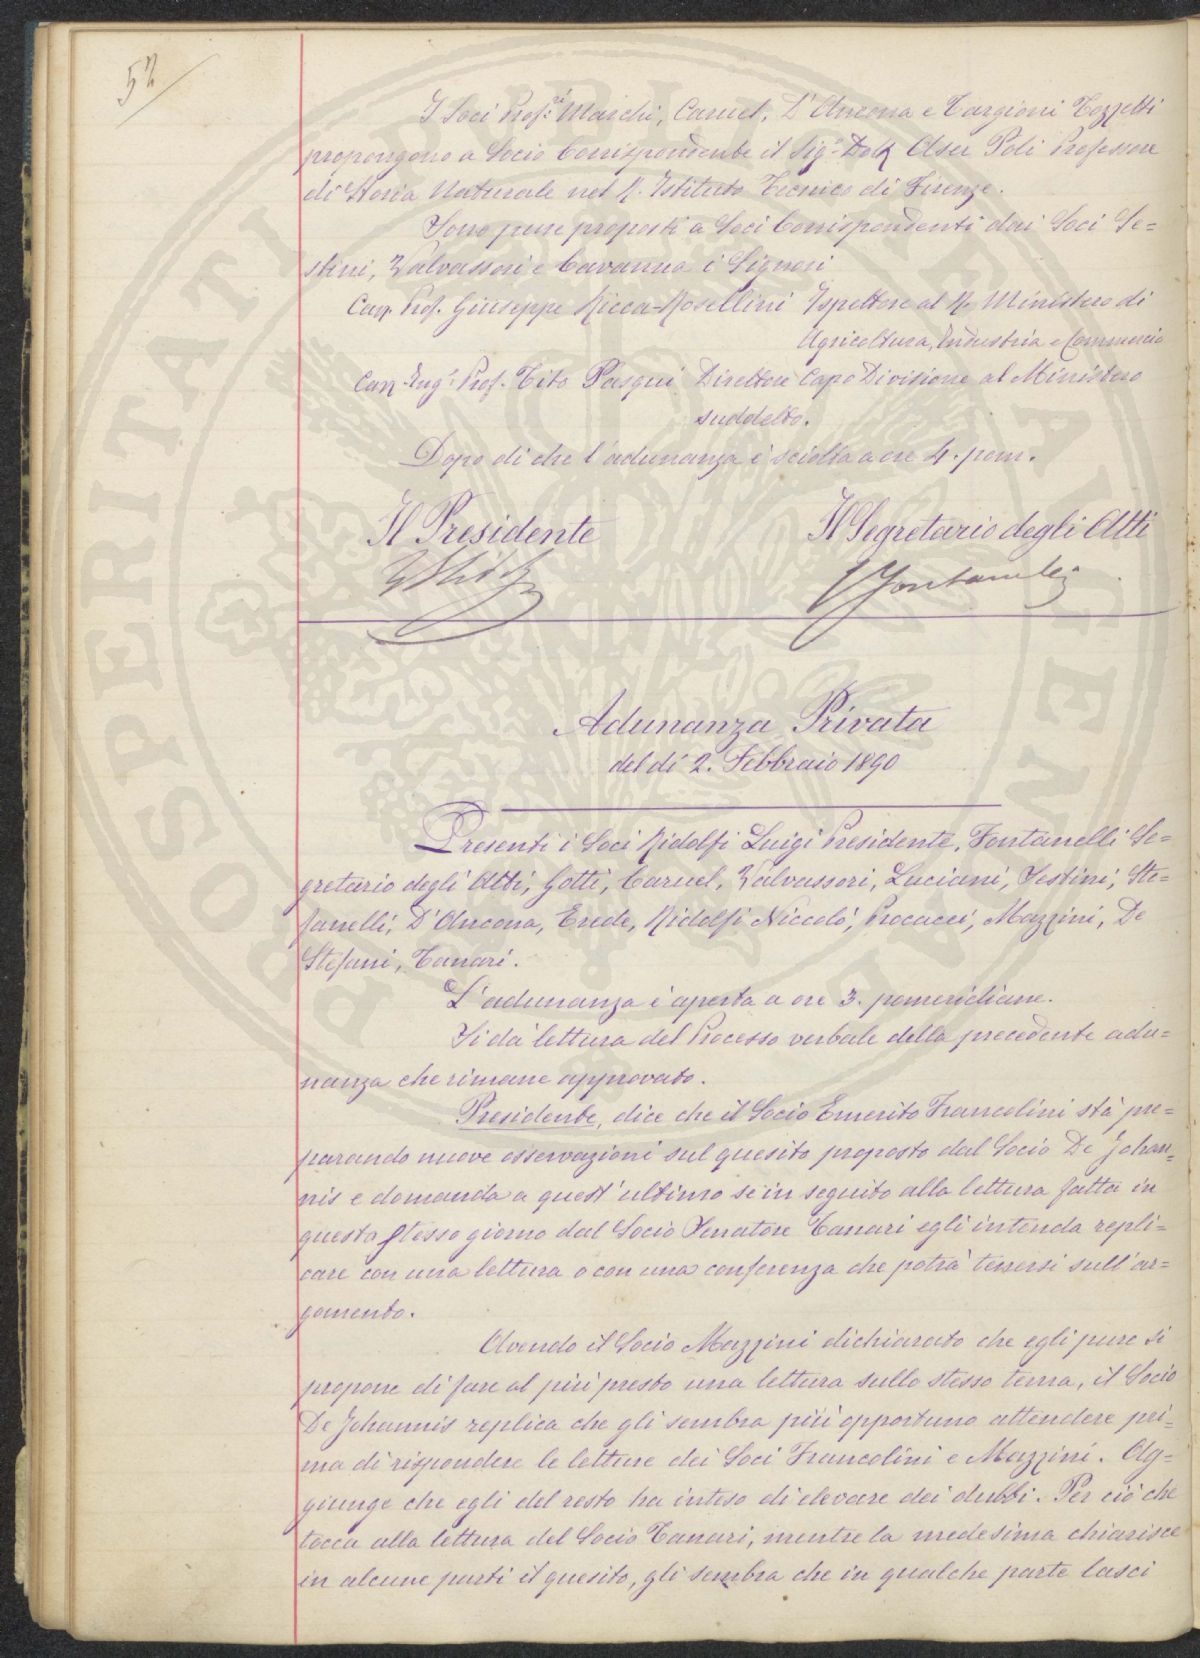 52
I Soci Prof.ri Marchi, Caruel, D'Ancona e Targioni Tozzetti
propongono a Socio Corrispondente il Sig.r Dott. Aser Poli Professore
di Storia Naturale nel R. Istituto Tecnico di Firenze.
Sono pure proposti a Soci Corrispondenti dai Soci Se=
stini, Valvassori e Cavanna i Signori
Cav. Prof. Giuseppe Ricca-Rosellini Ispettore al R. Ministero di
Agricoltura, Industria e Commercio
Cav. Ing.r Prof. Tito Pasqui Direttore Capo Divisione al Ministero
suddetto.
Dopo di che l'adunanza è sciolta a ore 4. pom.
Il Presidente
Il Segretario degli Atti
L Ridolfi
Fontanelli
Adunanza Privata
del dì 2. Febbraio 1890
Presenti i Soci Ridolfi Luigi Presidente, Fontanelli Se=
gretario degli Atti, Gotti, Caruel, Valvassori, Luciani, Sestini, Ste=
fanelli, D'Ancona, Erede, Ridolfi Niccolò, Procacci, Mazzini, De
Stefani, Tanari.
L'adunanza è aperta a ore 3. pomeridiane.
Si dà lettura del Processo verbale della precedente adu=
nanza che rimane approvato.
Presidente, dice che il Socio Emerito Francolini stà pre=
parando nuove osservazioni sul quesito proposto dal Socio De Johan=
nis e domanda a quest'ultimo se in seguito alla lettura fatta in
questo stesso giorno dal Socio Senatore Tanari egli intenda repli=
care con una lettura o con una conferenza che potrà tenersi sull'ar=
gomento.
Avendo il Socio Mazzini dichiarato che egli pure si
propone di fare al più presto una lettura sullo stesso tema, il Socio
De Johannis replica che gli sembra più opportuno attendere pri=
ma di rispondere le letture dei Soci Francolini e Mazzini. Ag=
giunge che egli del resto ha inteso di elevare dei dubbi. Per ciò che
tocca alla lettura del Socio Tanari, mentre la medesima chiarisce
in alcune parti il quesito, gli sembra che in qualche parte lasci